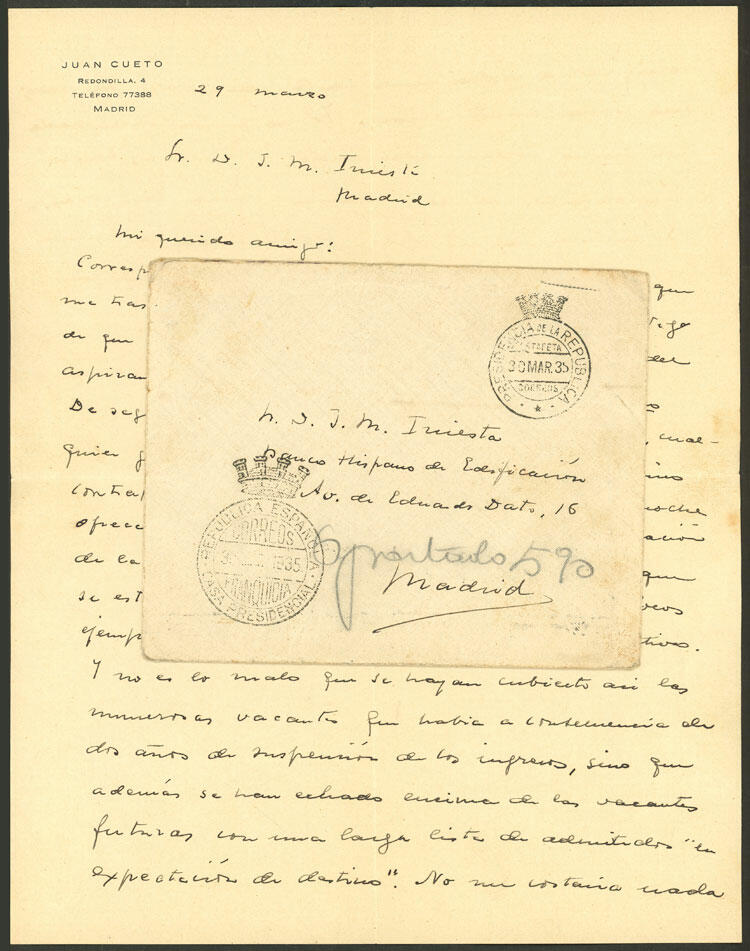 JUAN CUETO
REDONDILLA, 4
TELÉFONO 77388
MADRID
29 marzo
Sr. D. J. M. Iniesta
Madrid
Mi querido amigo:
Corresp
que
me tras
de que
del
aspiran
De seg
cual-
quier
contra
noche
ofrece
ación
de la
que
se est
ejemp
tivos.
PRESIDENCIA DE LA REPUBLICA
ESTAFETA
30 MAR. 35
CORREOS
Sr. D. J. M. Iniesta
Banco Hispano de Edificación
Av. de Eduardo Dato, 16
Apartado 590
Madrid
REPUBLICA ESPAÑOLA
CORREOS
1935
FRANQUICIA
CASA PRESIDENCIAL
Y no es lo malo que se hayan cubierto así las
numerosas vacantes que había a consecuencia de
dos años de suspensión de los ingresos, sino que
además se han echado encima de las vacantes
futuras con una larga lista de admitidos "en
expectación de destino". No me costaría nada